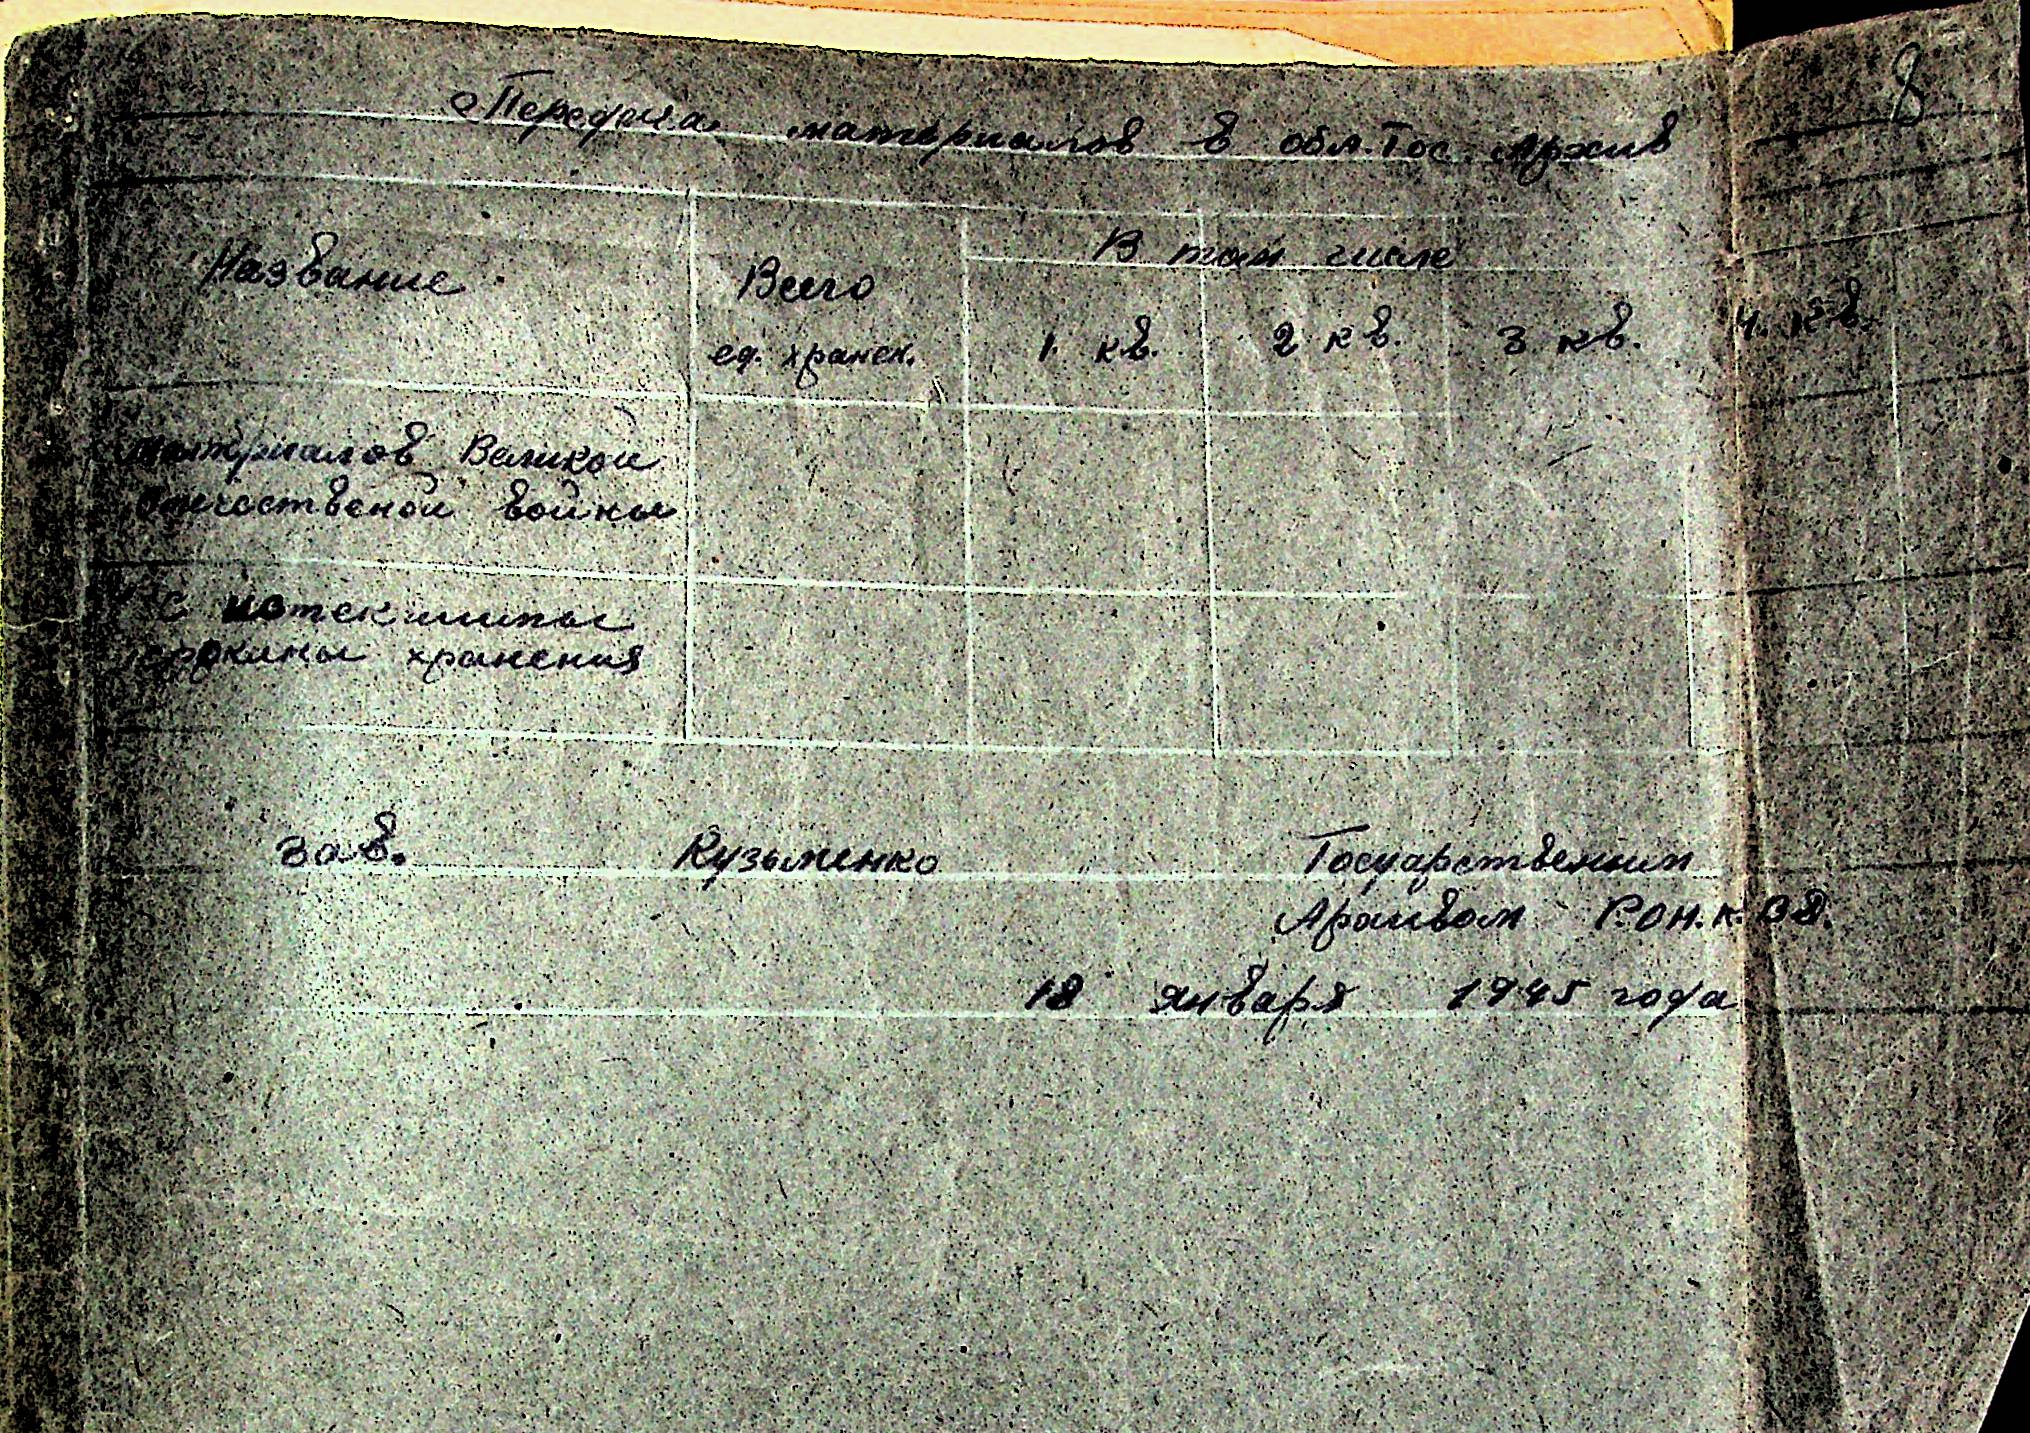 8
Передача материалов в обл. Гос. Архив
Название
Всего
ед. хранен.
В том числе
1. кв. 2 кв. 3 кв. 4. кв.
материалов Великой
Отечественой войны
с истекшимы
срокамы хранения
Зав. Кузьменко Госуарственним
Архивом Р.о Н.К.В.Д.
18 января 1945 года